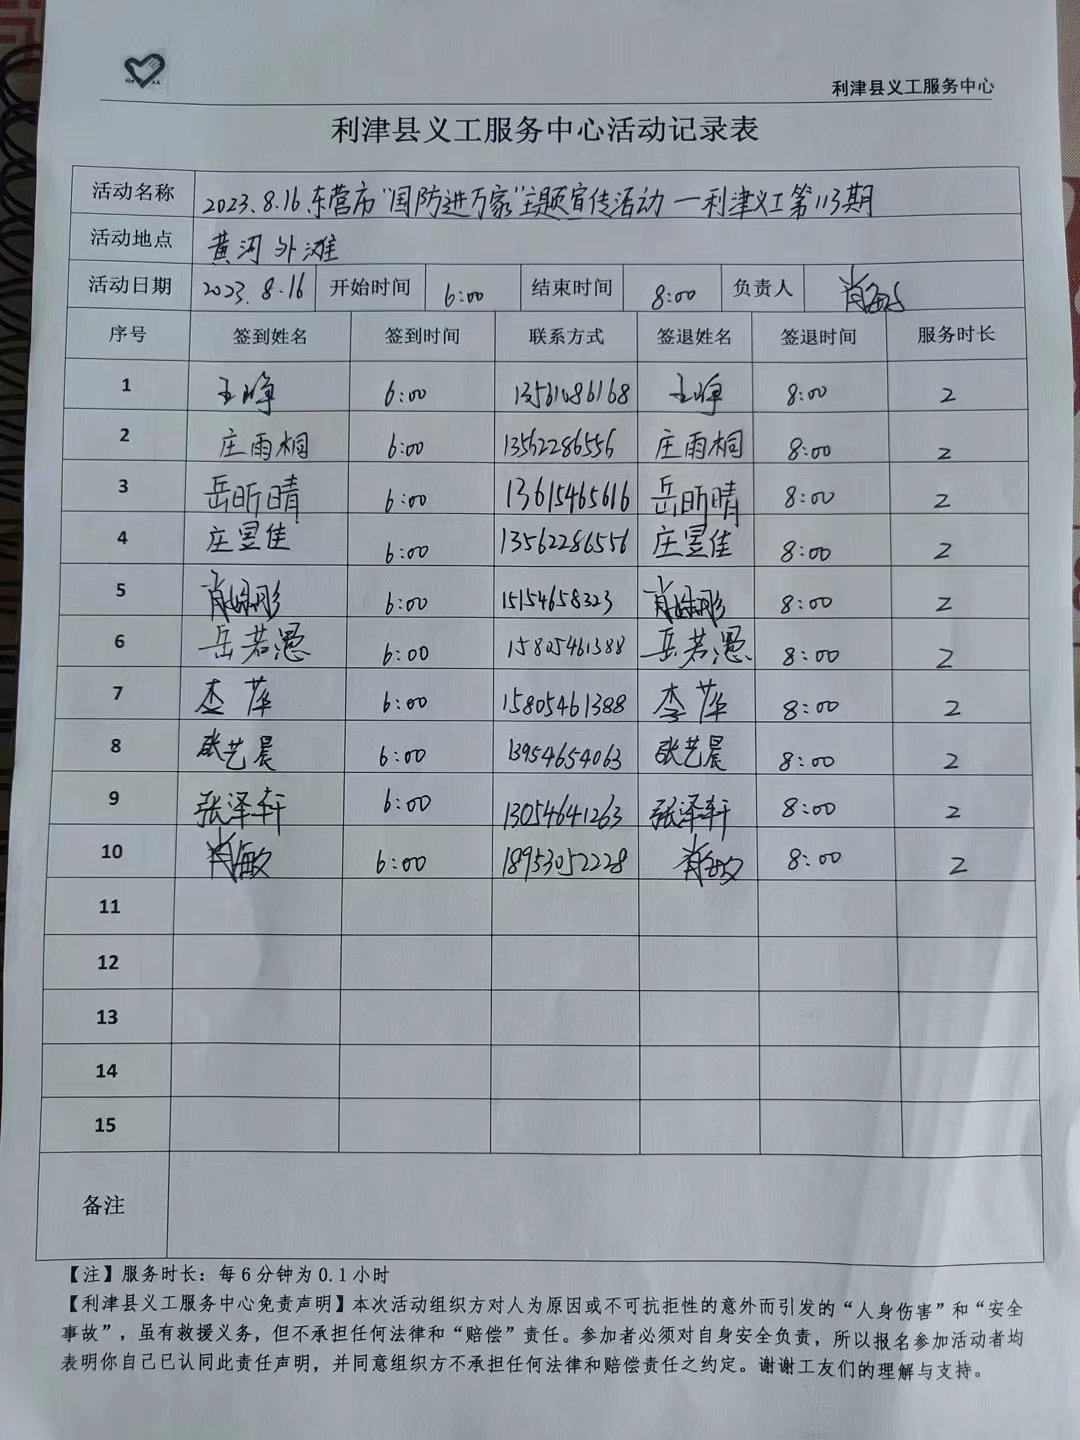 利津县义工服务中心
利津县义工服务中心活动记录表
活动名称 2023.8.16东营市“国防进万家”主题宣传活动—利津义工第113期
活动地点 黄河外滩
活动日期 2023.8.16 开始时间 6:00 结束时间 8:00 负责人 肖敏
序号 签到姓名 签到时间 联系方式 签退姓名 签退时间 服务时长
1 王峥 6:00 13561086168 王峥 8:00 2
2 庄雨桐 6:00 13562286556 庄雨桐 8:00 2
3 岳昕晴 6:00 13615465616 岳昕晴 8:00 2
4 庄昱佳 6:00 13562286556 庄昱佳 8:00 2
5 6:00 15154658323 8:00 2
6 岳若愚 6:00 15805461388 岳若愚 8:00 2
7 李萍 6:00 15805461388 李萍 8:00 2
8 张艺晨 6:00 13954654063 张艺晨 8:00 2
9 张泽轩 6:00 13054641263 张泽轩 8:00 2
10 肖敏 6:00 18953052228 肖敏 8:00 2
11
12
13
14
15
备注
【注】服务时长：每6分钟为0.1小时
【利津县义工服务中心免责声明】本次活动组织方对人为原因或不可抗拒性的意外而引发的“人身伤害”和“安全
事故”，虽有救援义务，但不承担任何法律和“赔偿”责任。参加者必须对自身安全负责，所以报名参加活动者均
表明你自己已认同此责任声明，并同意组织方不承担任何法律和赔偿责任之约定。谢谢工友们的理解与支持。